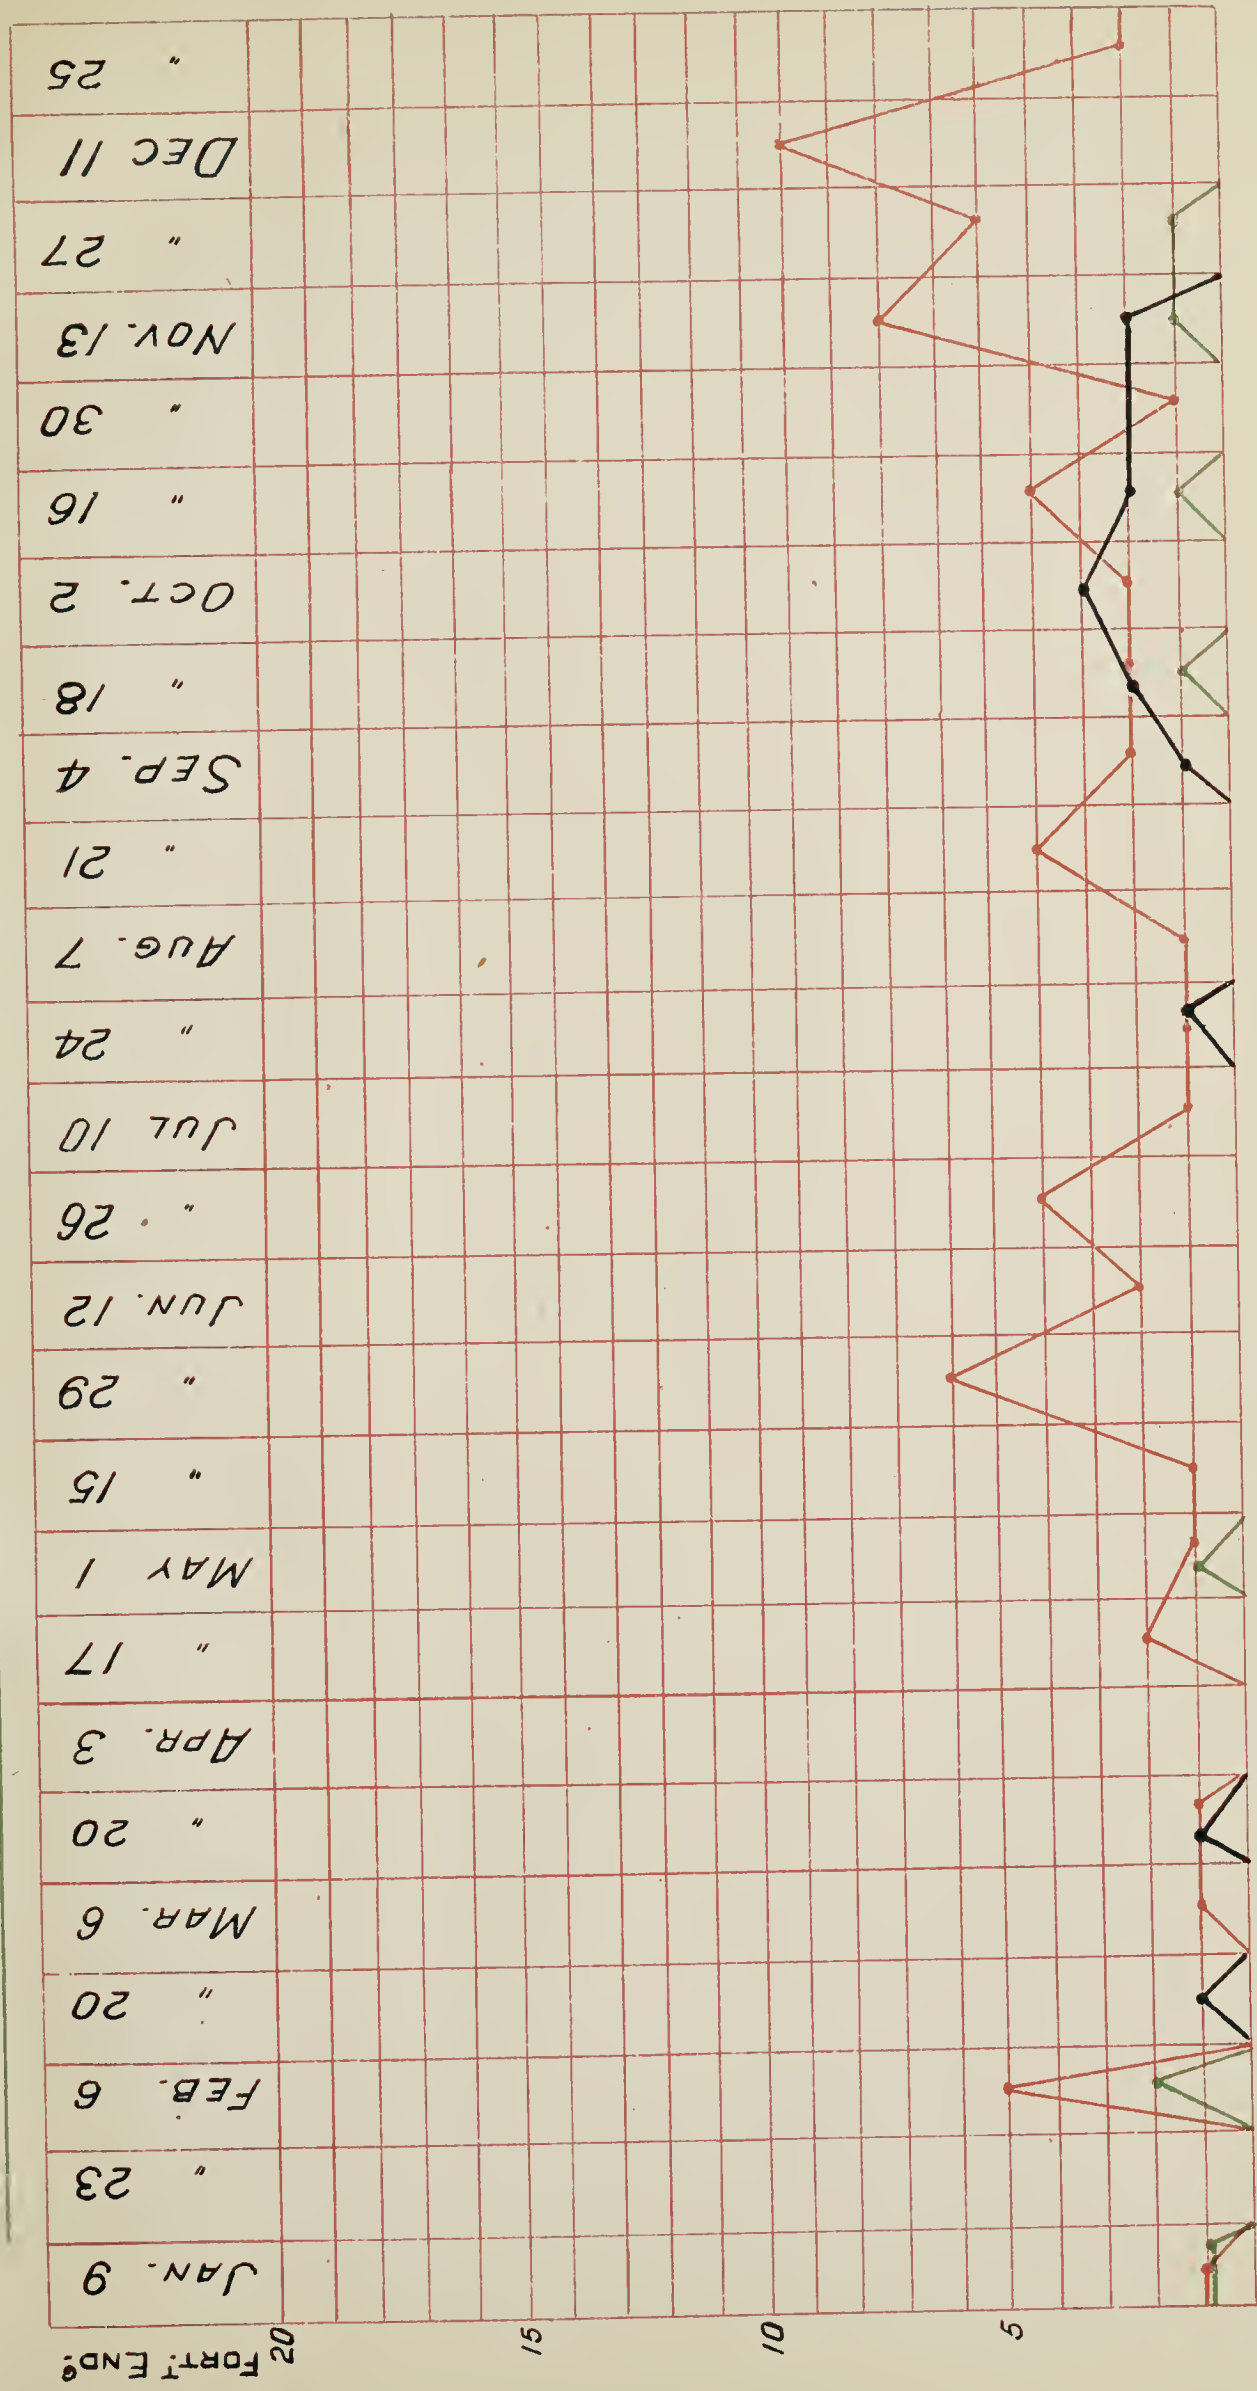 FORT.T END.G
20
15
10
5
JAN. 9
" 23
FEB. 6
" 20
MAR. 6
" 20
APR. 3
" 17
MAY 1
" 15
" 29
JUN. 12
" 26
JUL 10
" 24
AUG. 7
" 21
SEP. 4
" 18
OCT. 2
" 16
" 30
NOV. 13
" 27
DEC 11
" 25